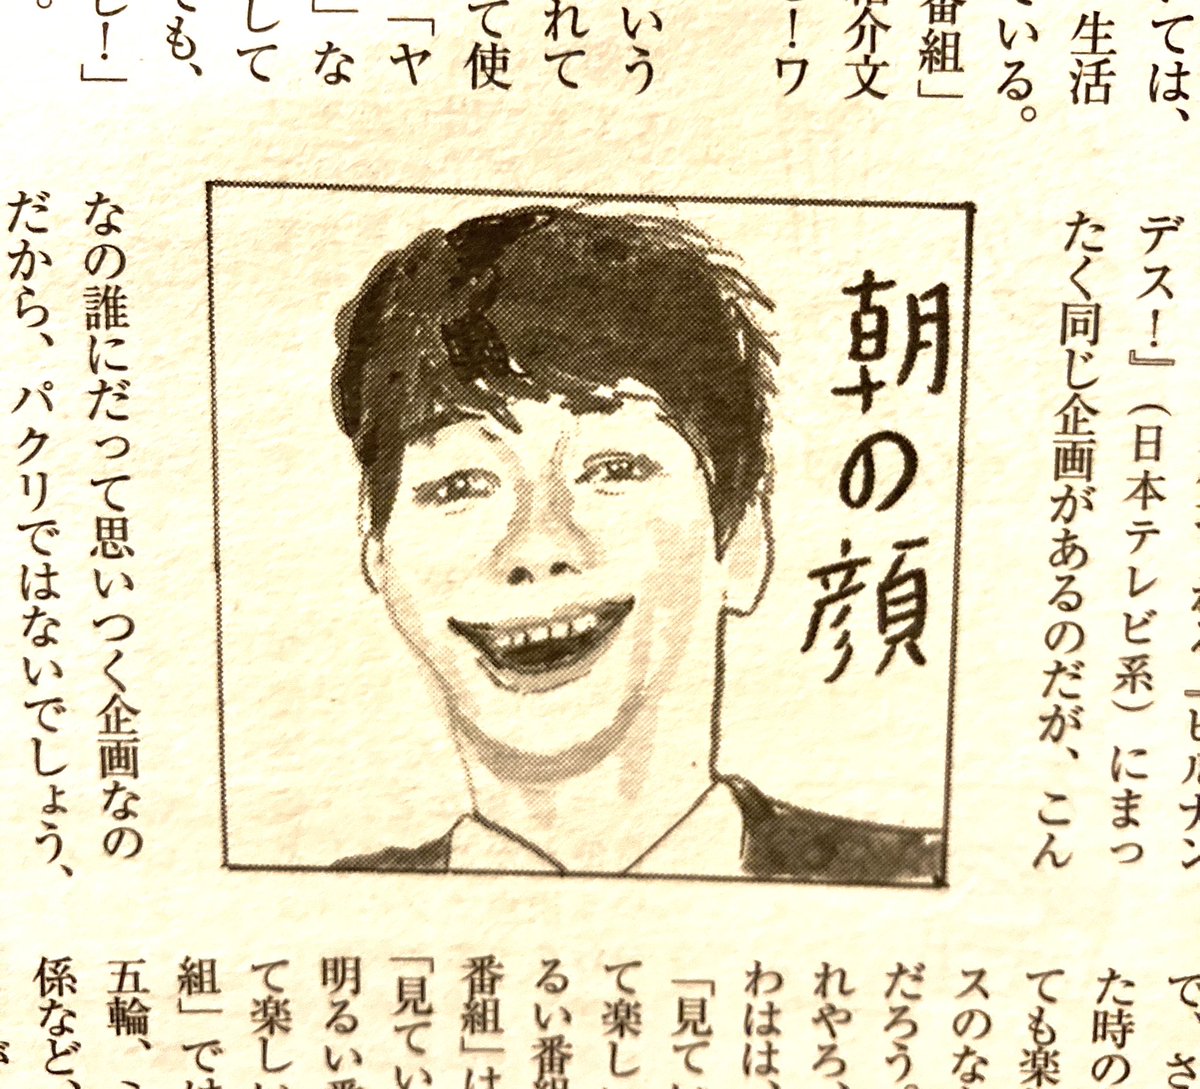 ては、
生活
いる。
番組」
介文
！ワ
いう
れて
て使
「ヤ
」な
して
も、
し！」
。
『ヒルナン
デス！』（日本テレビ系）にまっ
たく同じ企画があるのだが、こん
朝の顔
なの誰にだって思いつく企画なの
だから、パクリではないでしょう、
で、さ
た時の
ても楽
スのな
だろう。
れやろ、
わはは、
「見て
て楽し
るい番組
番組」は
「見てい
明るい番
て楽し
組」では
五輪、
係など、
が